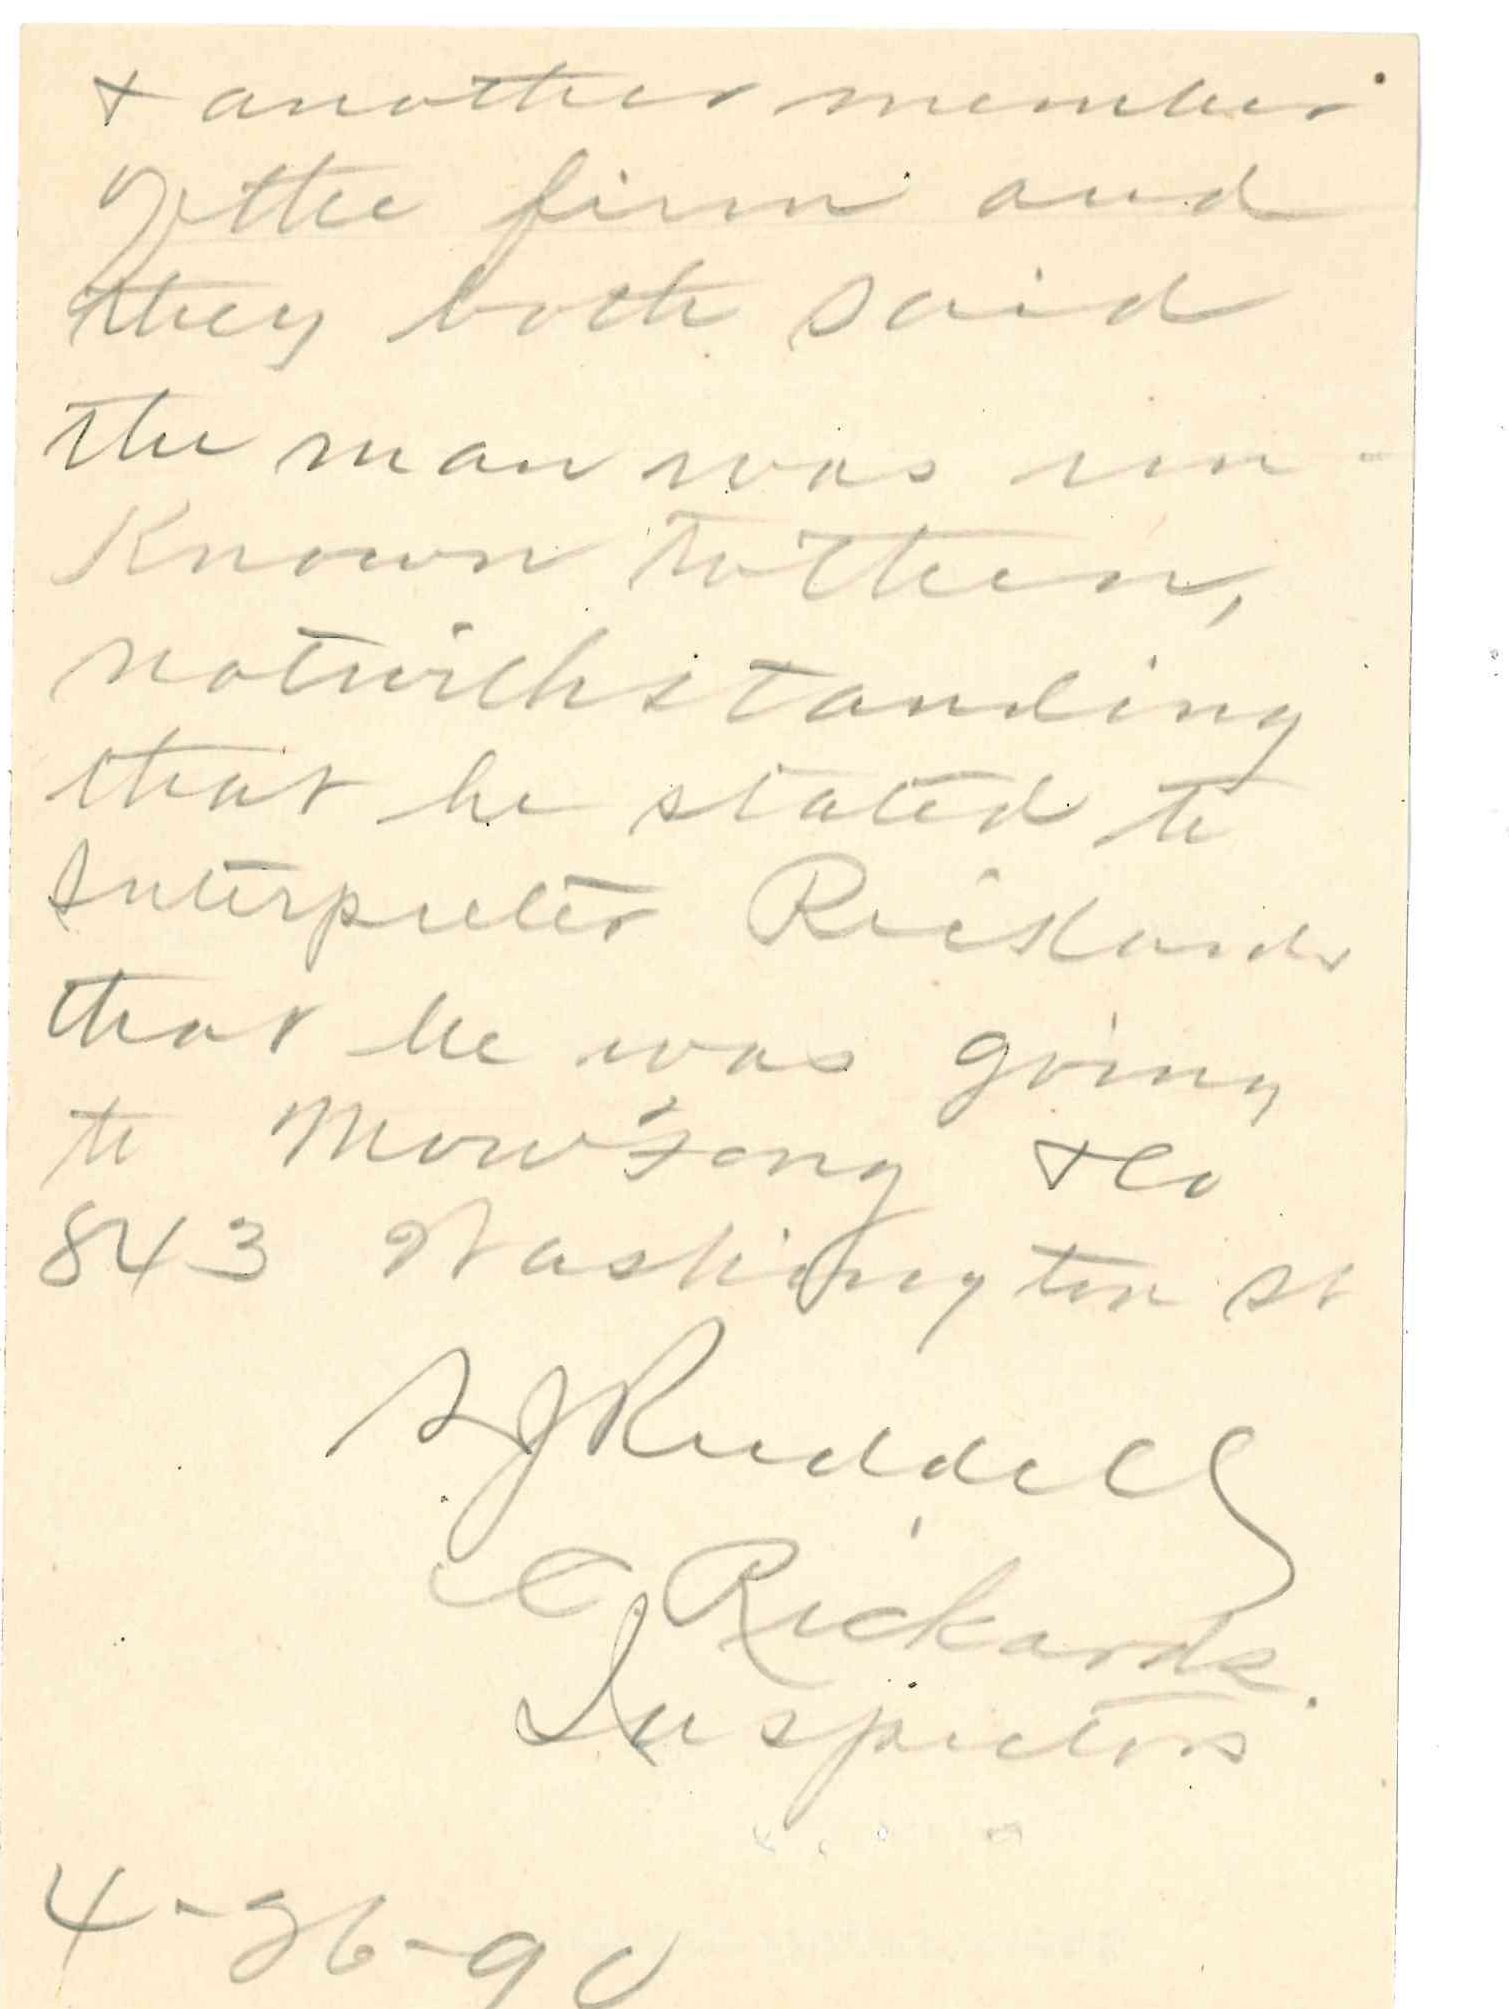 & another member
of the firm and
they both said
the man was un-
known to them,
notwithstanding
that he stated to
Interpreter Rickards
that he was going
to Mow Fong & Co
843 Washington St
S J Ruddell
C Rickards.
Inspectors
4-26-90